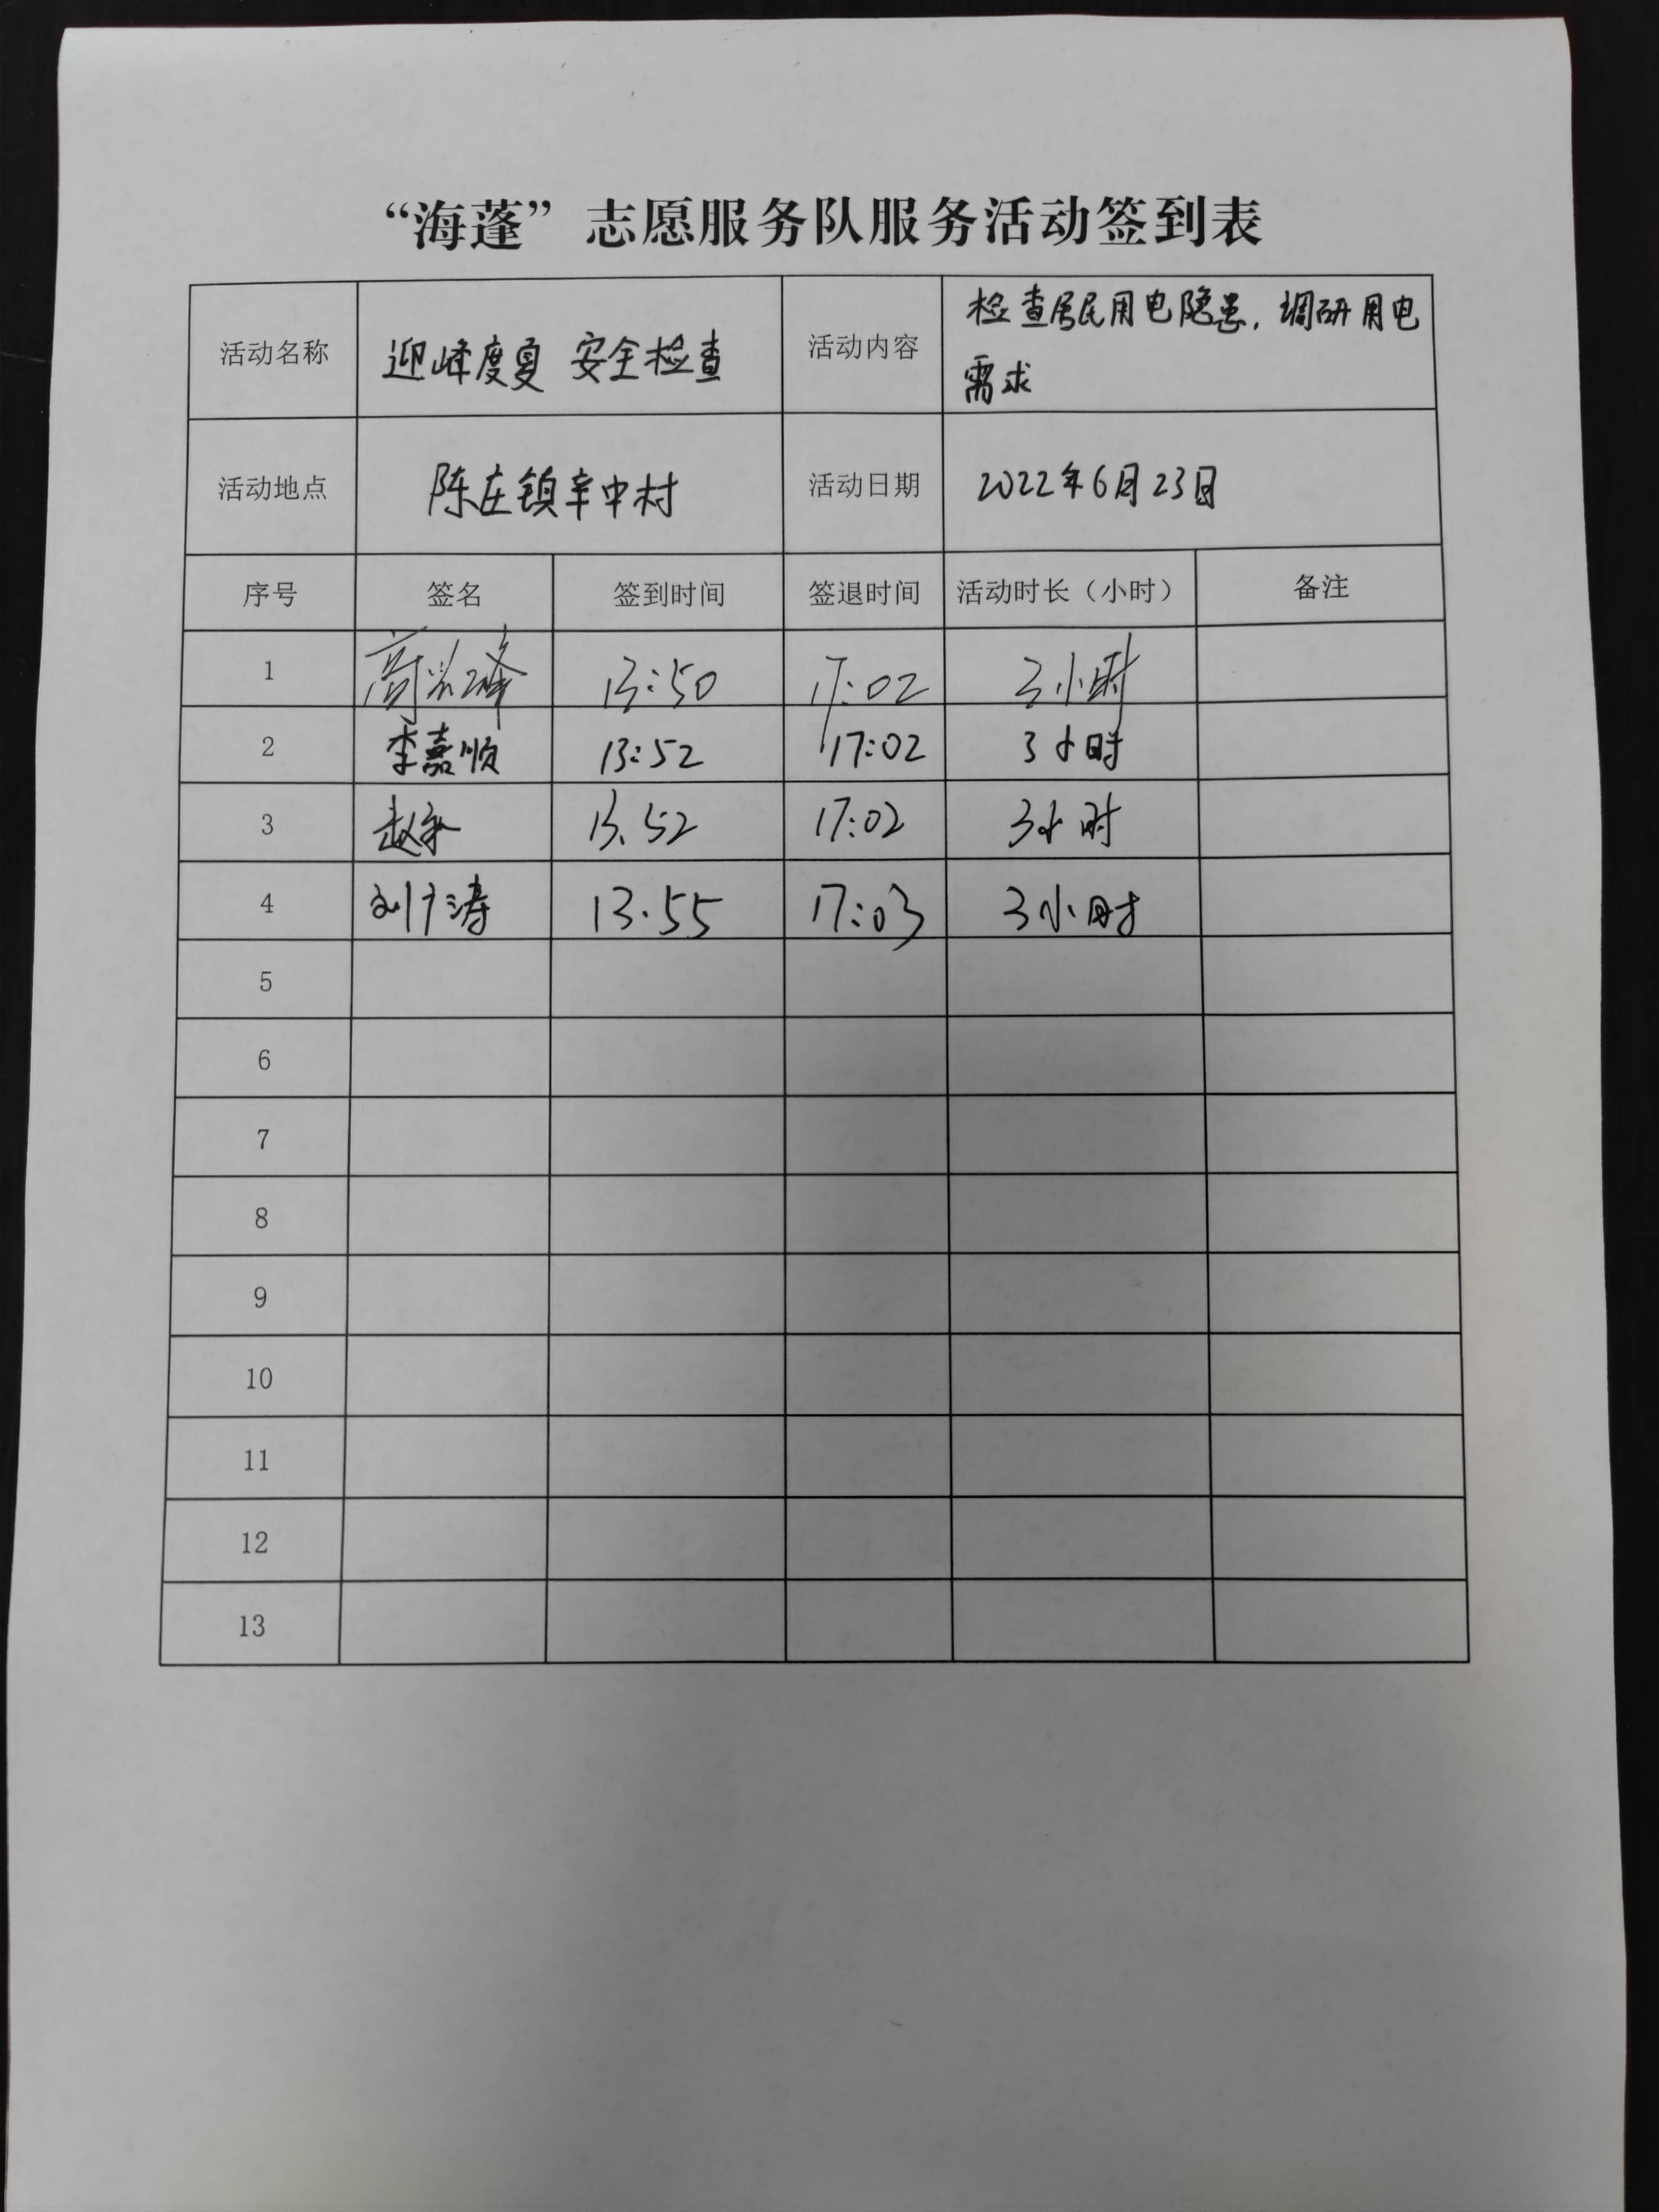 “海蓬”志愿服务队服务活动签到表
活动名称 迎峰度夏 安全检查 活动内容 检查居民用电隐患，调研用电
需求
活动地点 陈庄镇辛中村 活动日期 2022年6月23日
序号 签名 签到时间 签退时间 活动时长（小时） 备注
1 13:50 17:02 3小时
2 李嘉顺 13:52 17:02 3小时
3 13.52 17:02 3小时
4 刘广涛 13.55 17:03 3小时
5
6
7
8
9
10
11
12
13